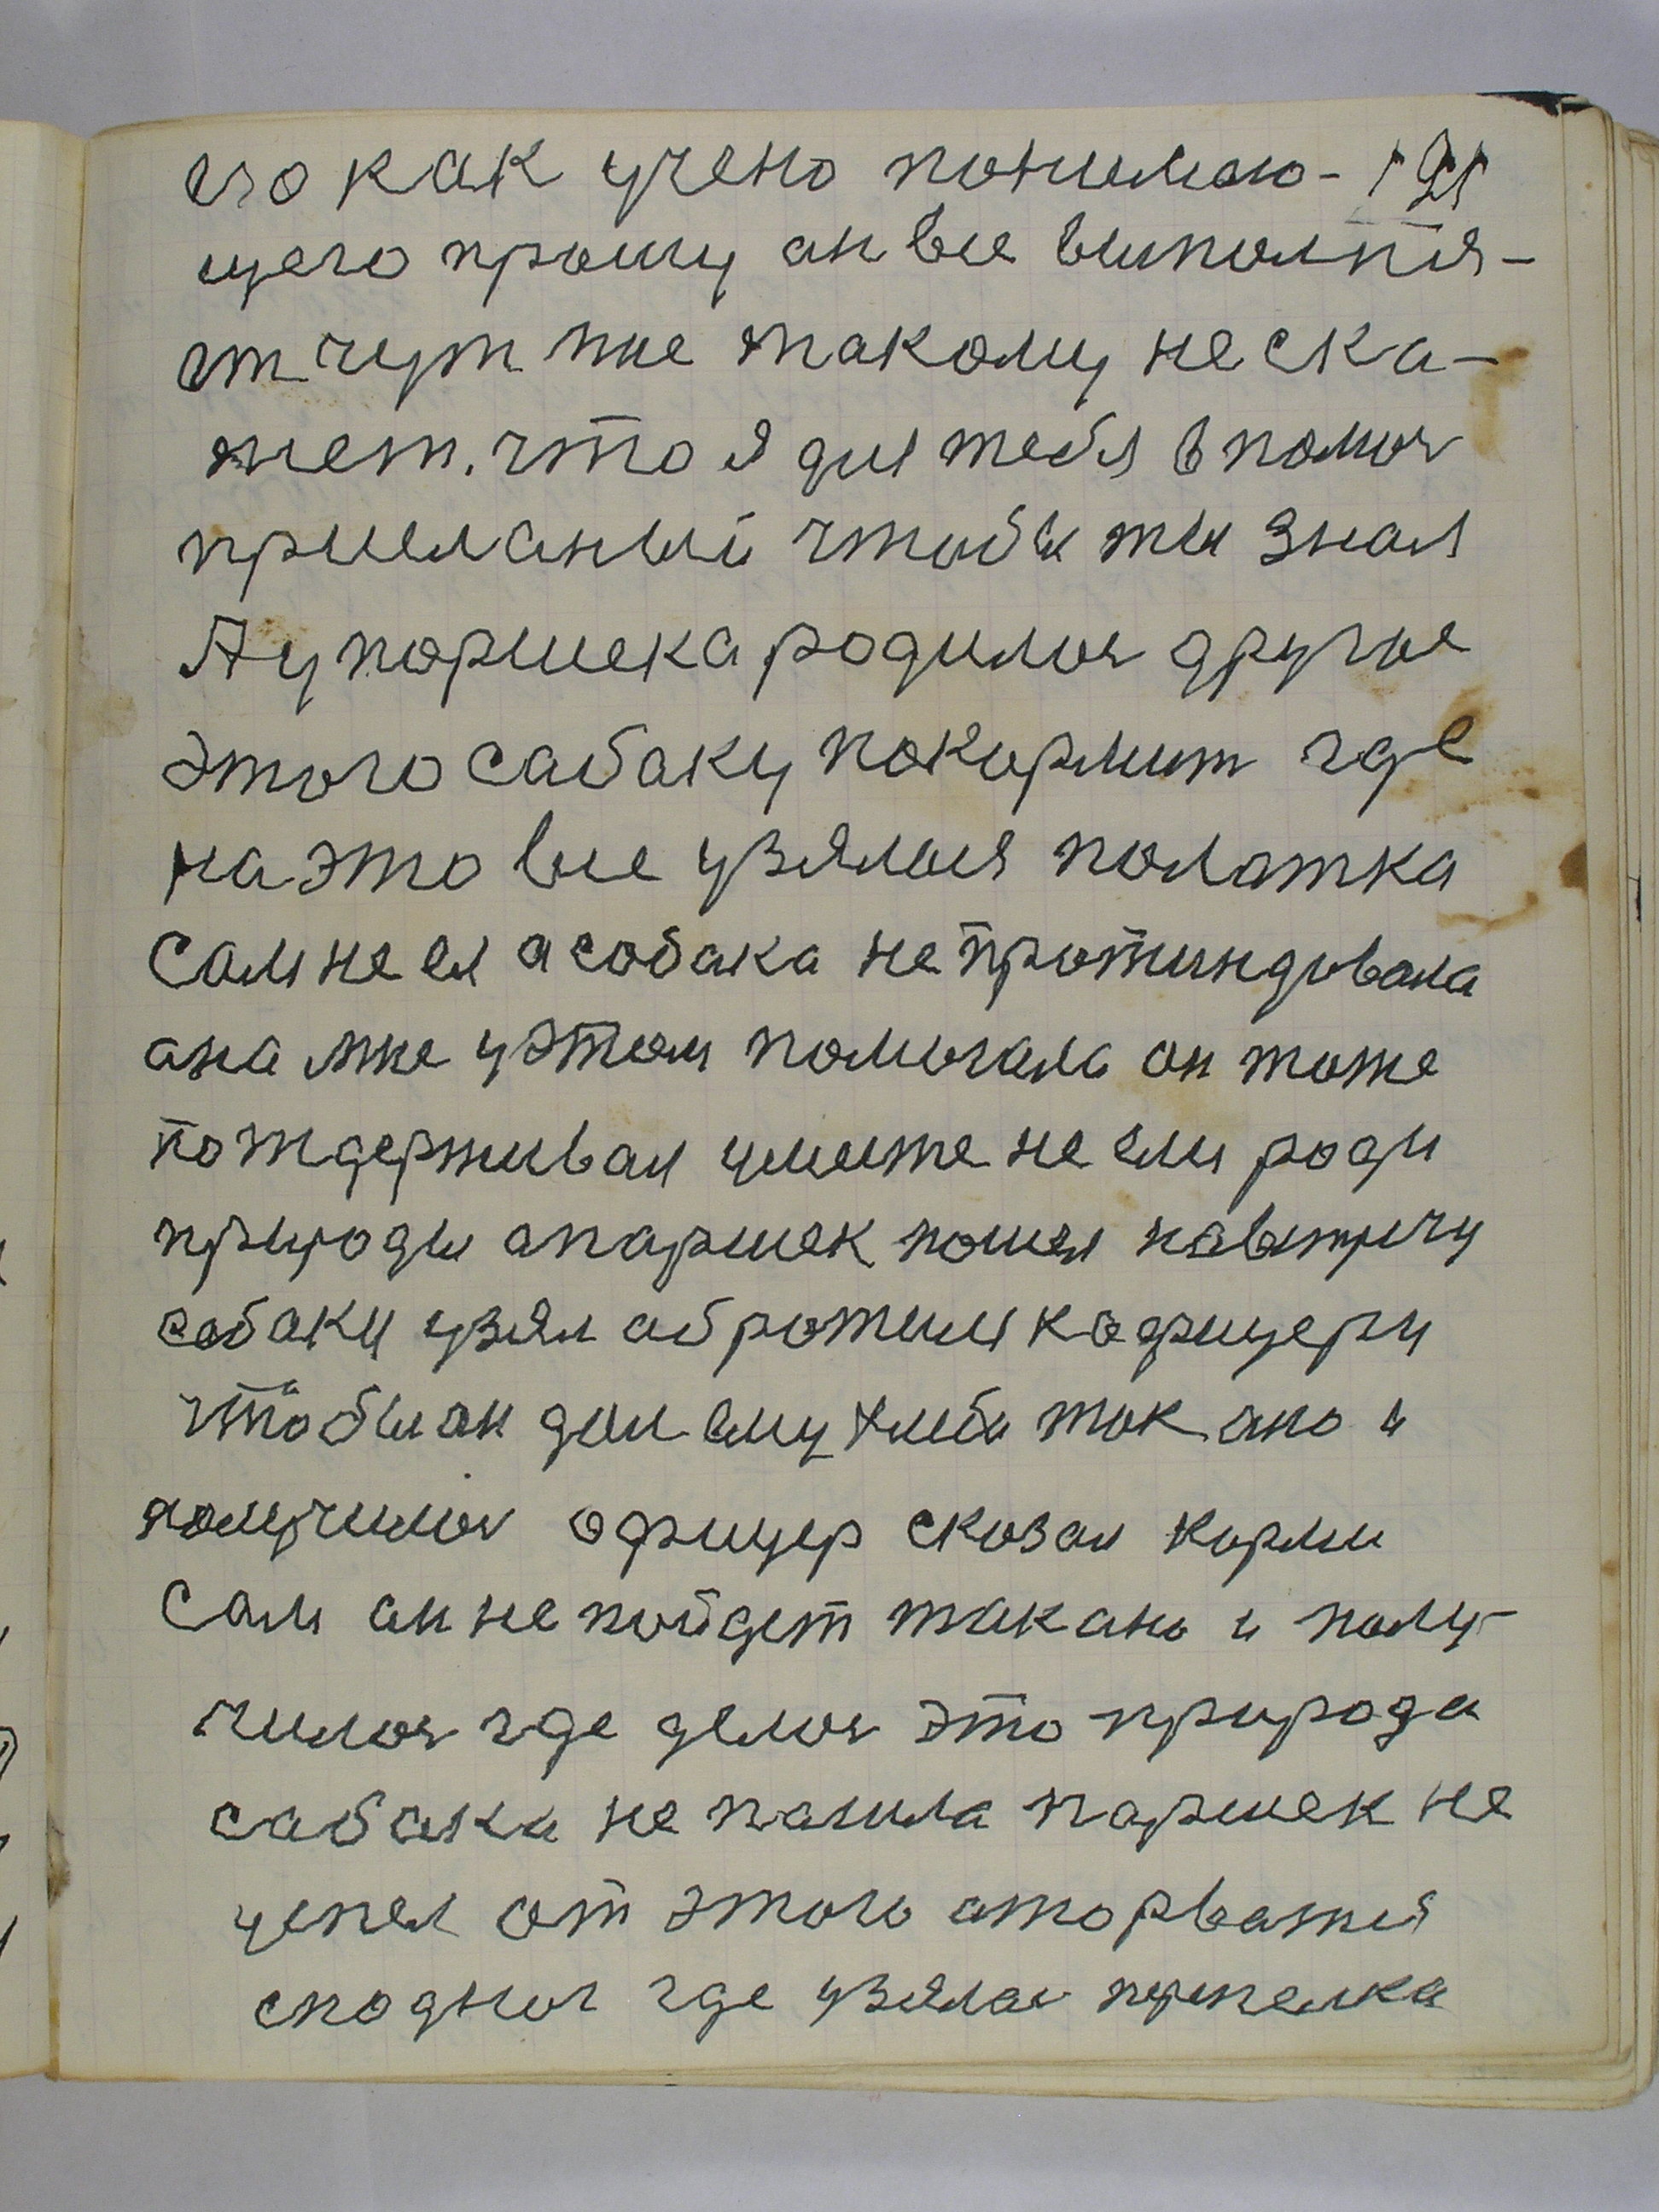 его как учено понимаю- 191
щего прошу он все выполня-
ет чуть мне такому не ска-
жет. что я для тебя в помоч
присланый чтобы ты знал
А у поршека родилос другое
этого сабаку покормит где
на это все узялося полатка
сам не ел а собака не протиндовала
ана мне у этом помогала он тоже
потдерживал умеште не ели роди
природы апаршек пошел навстричу
собаки узял обротился кофицеру
чтобы он дал ему хлеба так ано и
получилос офицер сказал корми
сам он не пойдет так ано и полу-
чилос где делос это природа
сабака не пашла паршек не
успел от этого аторватся
сподног где узялас перепелка